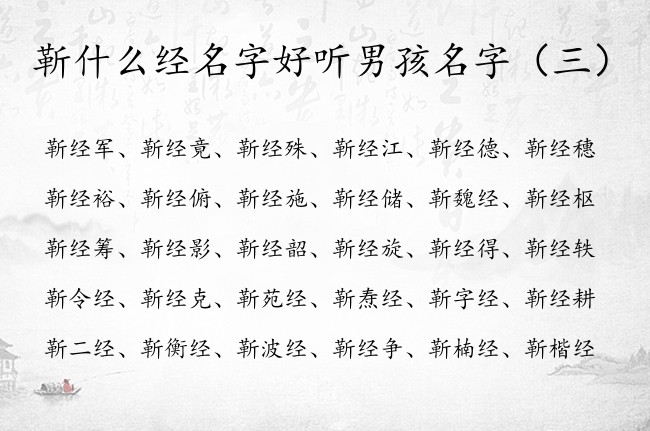 靳什么经名字好听男孩名字（三）
靳经军、靳经竟、靳经殊、靳经江、靳经德、靳经穗
靳经裕、靳经俯、靳经施、靳经储、靳魏经、靳经枢
靳经筹、靳经影、靳经韶、靳经旋、靳经得、靳经轶
靳令经、靳经克、靳苑经、靳焘经、靳字经、靳经耕
靳二经、靳衡经、靳波经、靳经争、靳楠经、靳楷经